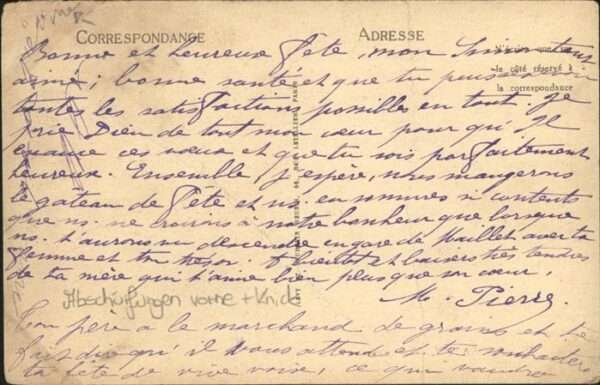 CORRESPONDANCE
ADRESSE
Bonne et heureuse fête, mon Simon
aimé; bonne santé et que tu puisses
le côté réservé à
la correspondance
toutes les satisfactions possibles en tout. Je
prie Dieu de tout mon cœur pour qu'Il
exauce ces vœux et que tu sois parfaitement
heureux. Ensemble, j'espère, nous mangerons
le gâteau de fête et ns. en sommes si contents
que ns. ne croirons à notre bonheur que lorsque
ns. t'aurons vu descendre en gare de avec ta
femme et ton trésor. A bientôt et baisers très tendres
de ta mère qui t'aime bien plus que son cœur.
M. Pierre.
Abschürfungen vorne + Knicke
Ton père a le marchand de grains et te
fait dire qu'il vous attend et te souhaitera
ta fête de vive voix, ce qui vaudra